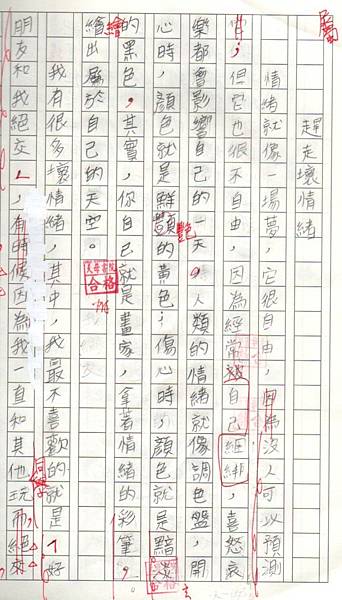 屬
趕走壞情緒
情緒就像一場夢,它很自由,因為沒人可以預測
它;但它也很不自由,因為經常被自己綑綁,喜怒哀
樂都會影響自己的一天。人類的情緒就像調色盤,開
心時,顏色就是鮮艷的黃色;傷心時,顏色就是黯淡
艷
的黑色,其實,你自己就是畫家,拿著情緒的彩筆,
繪
繪出屬於自己的天空。
合格
我有很多壞情緒,其中,我最不喜歡的就是「好
朋友和我絕交」,有時候因為我一直和其他玩而絕